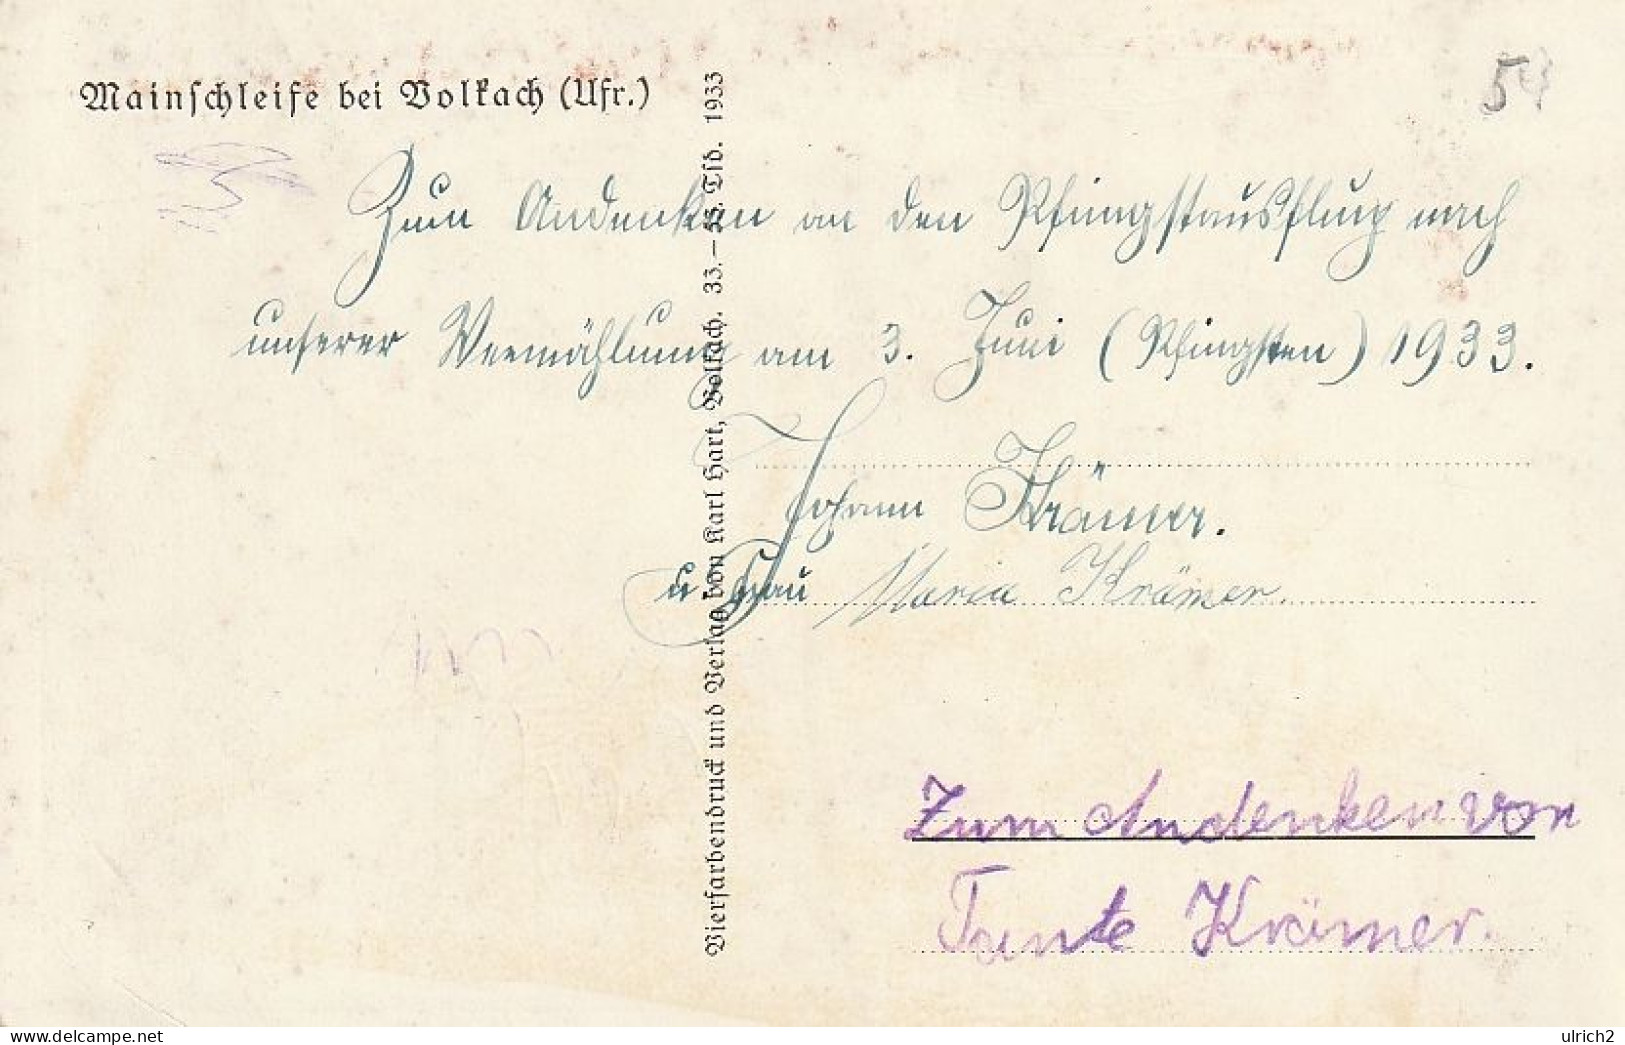 Mainschleife bei Volkach (Ufr.)
54
Zum Andenken an den Pfingstausflug nach
unserer Vermählung am 3. Juni (Pfingsten) 1933.
Johann Krämer.
u Frau Maria Krämer.
Vierfarbendruck und Verlag von Karl Hart, Volkach. 33.–35. Tsd. 1933
Zum Andenken von
Tante Krämer.
delcampe.net
ulrich2